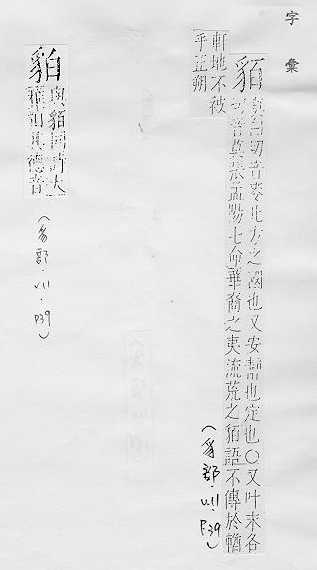 字彙
貊
莫白切音麥北方之國也又安靜也定也〇又叶末各
切音莫張孟陽七命華裔之夷流荒之貊語不傳於輶
軒地不被
乎正朔
(豸部.v.11.P39)
貃
與貊同詩大
雅貃其德音
(豸部.v.11.P39)